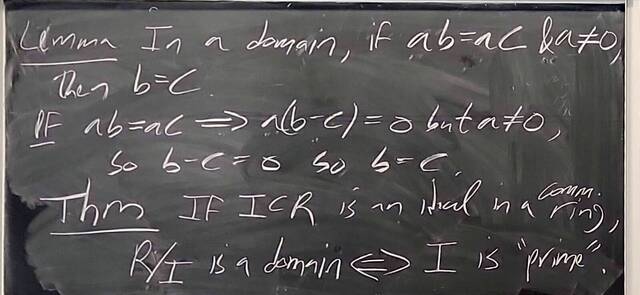 Lemma In a domain, if ab=ac & a≠0,
Then b=c.
PF ab=ac ⟹ a(b-c)=0 but a≠0,
So b-c=0 so b=c.
Thm IF I⊂R is an ideal in a comm. ring,
R/I is a domain ⟺ I is "prime".